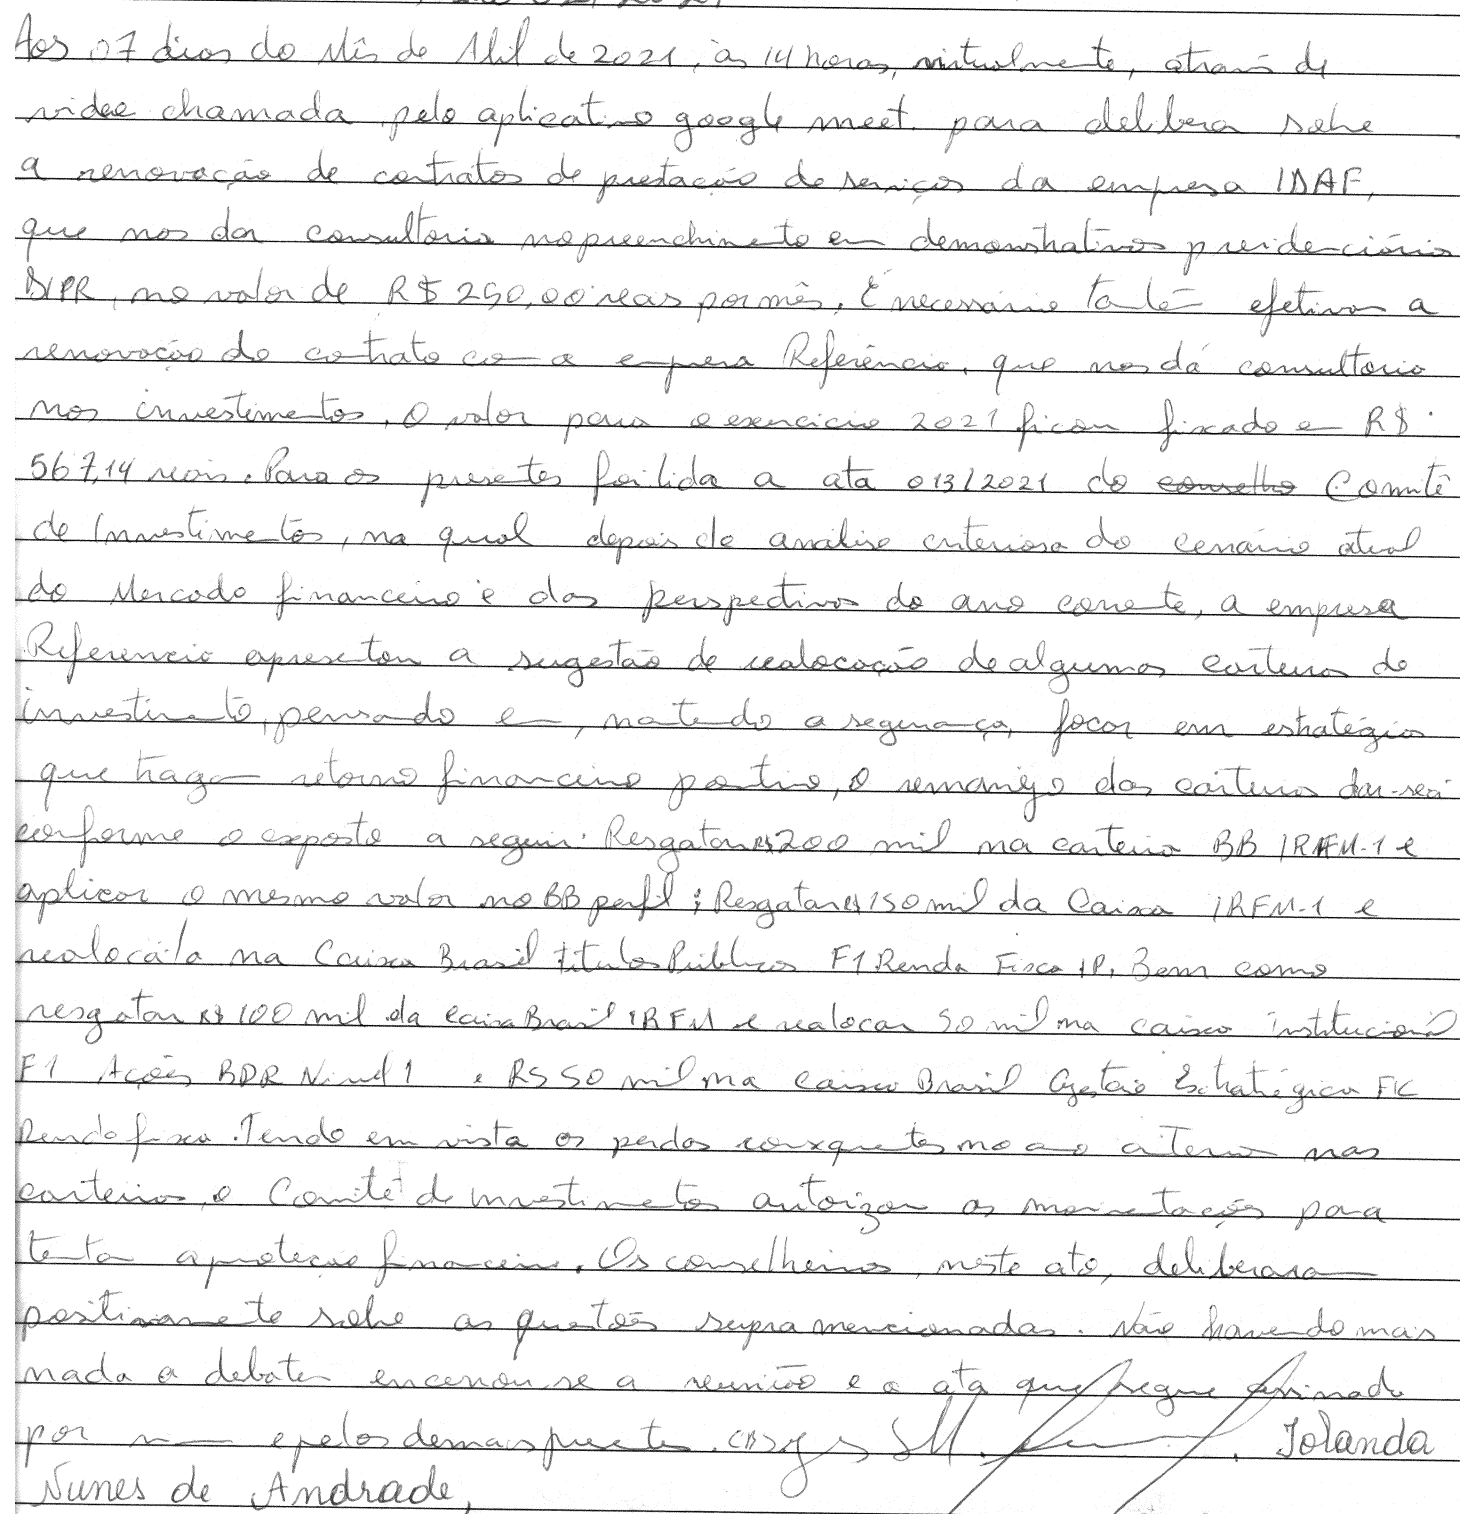 Aos 07 dias do Mês de Abril de 2021, às 14 horas, virtualmente, através de
vídeo chamada pelo aplicativo google meet. para delibera sobre
a renovação de contratos de prestação de serviços da empresa IDAF,
que nos da consultoria no preenchimento em demonstrativos previdenciário
DIPR, no valor de R$ 250,00 reas por mês. É necessário também efetivar a
renovação do contrato com a empresa Referência, que nos dá consultoria
nos investimentos. O valor para o exercicio 2021 ficou fixado em R$
567,14 reais. Para os presentes foi lida a ata 013/2021 do conselho Comitê
de Investimentos, na qual depois de análise criteriosa do cenário atual
do Mercado financeiro e das perspectivas do ano corrente, a empresa
Referencia apresentou a sugestão de realocação de algumas carteiras de
investimento, pensado em, mantendo a segurança, focar em estratégias
que tragam retorno financeiro positivo, o remanejo das carteiras dar-se-á
conforme o exposto a seguir: Resgatar R$ 200 mil na carteira BB IRFM-1 e
aplicar o mesmo valor no BB perfil; Resgatar R$ 150 mil da Caixa IRFM-1 e
realocá-la na Caixa Brasil títulos Públicos FI Renda Fixa LP. Bem como
resgatar R$ 100 mil da Caixa Brasil IRFM e realocar 50 mil na caixa institucional
FI Ações BDR Nivel 1 e R$ 50 mil na Caixa Brasil Gestão Estratégica FIC
Renda fixa. Tendo em vista as perdas no ano anterior nas
carteiras, o Comitê de Investimentos autorizou as movimentações para
tentar a proteção financeira. Os conselheiros, neste ato, deliberaram
positivamente sobre as questões supra mencionadas. Não havendo mais
nada a debater encerrou-se a reunião e a ata que segue assinada
por mim e pelos demais presentes. Iolanda
Nunes de Andrade,